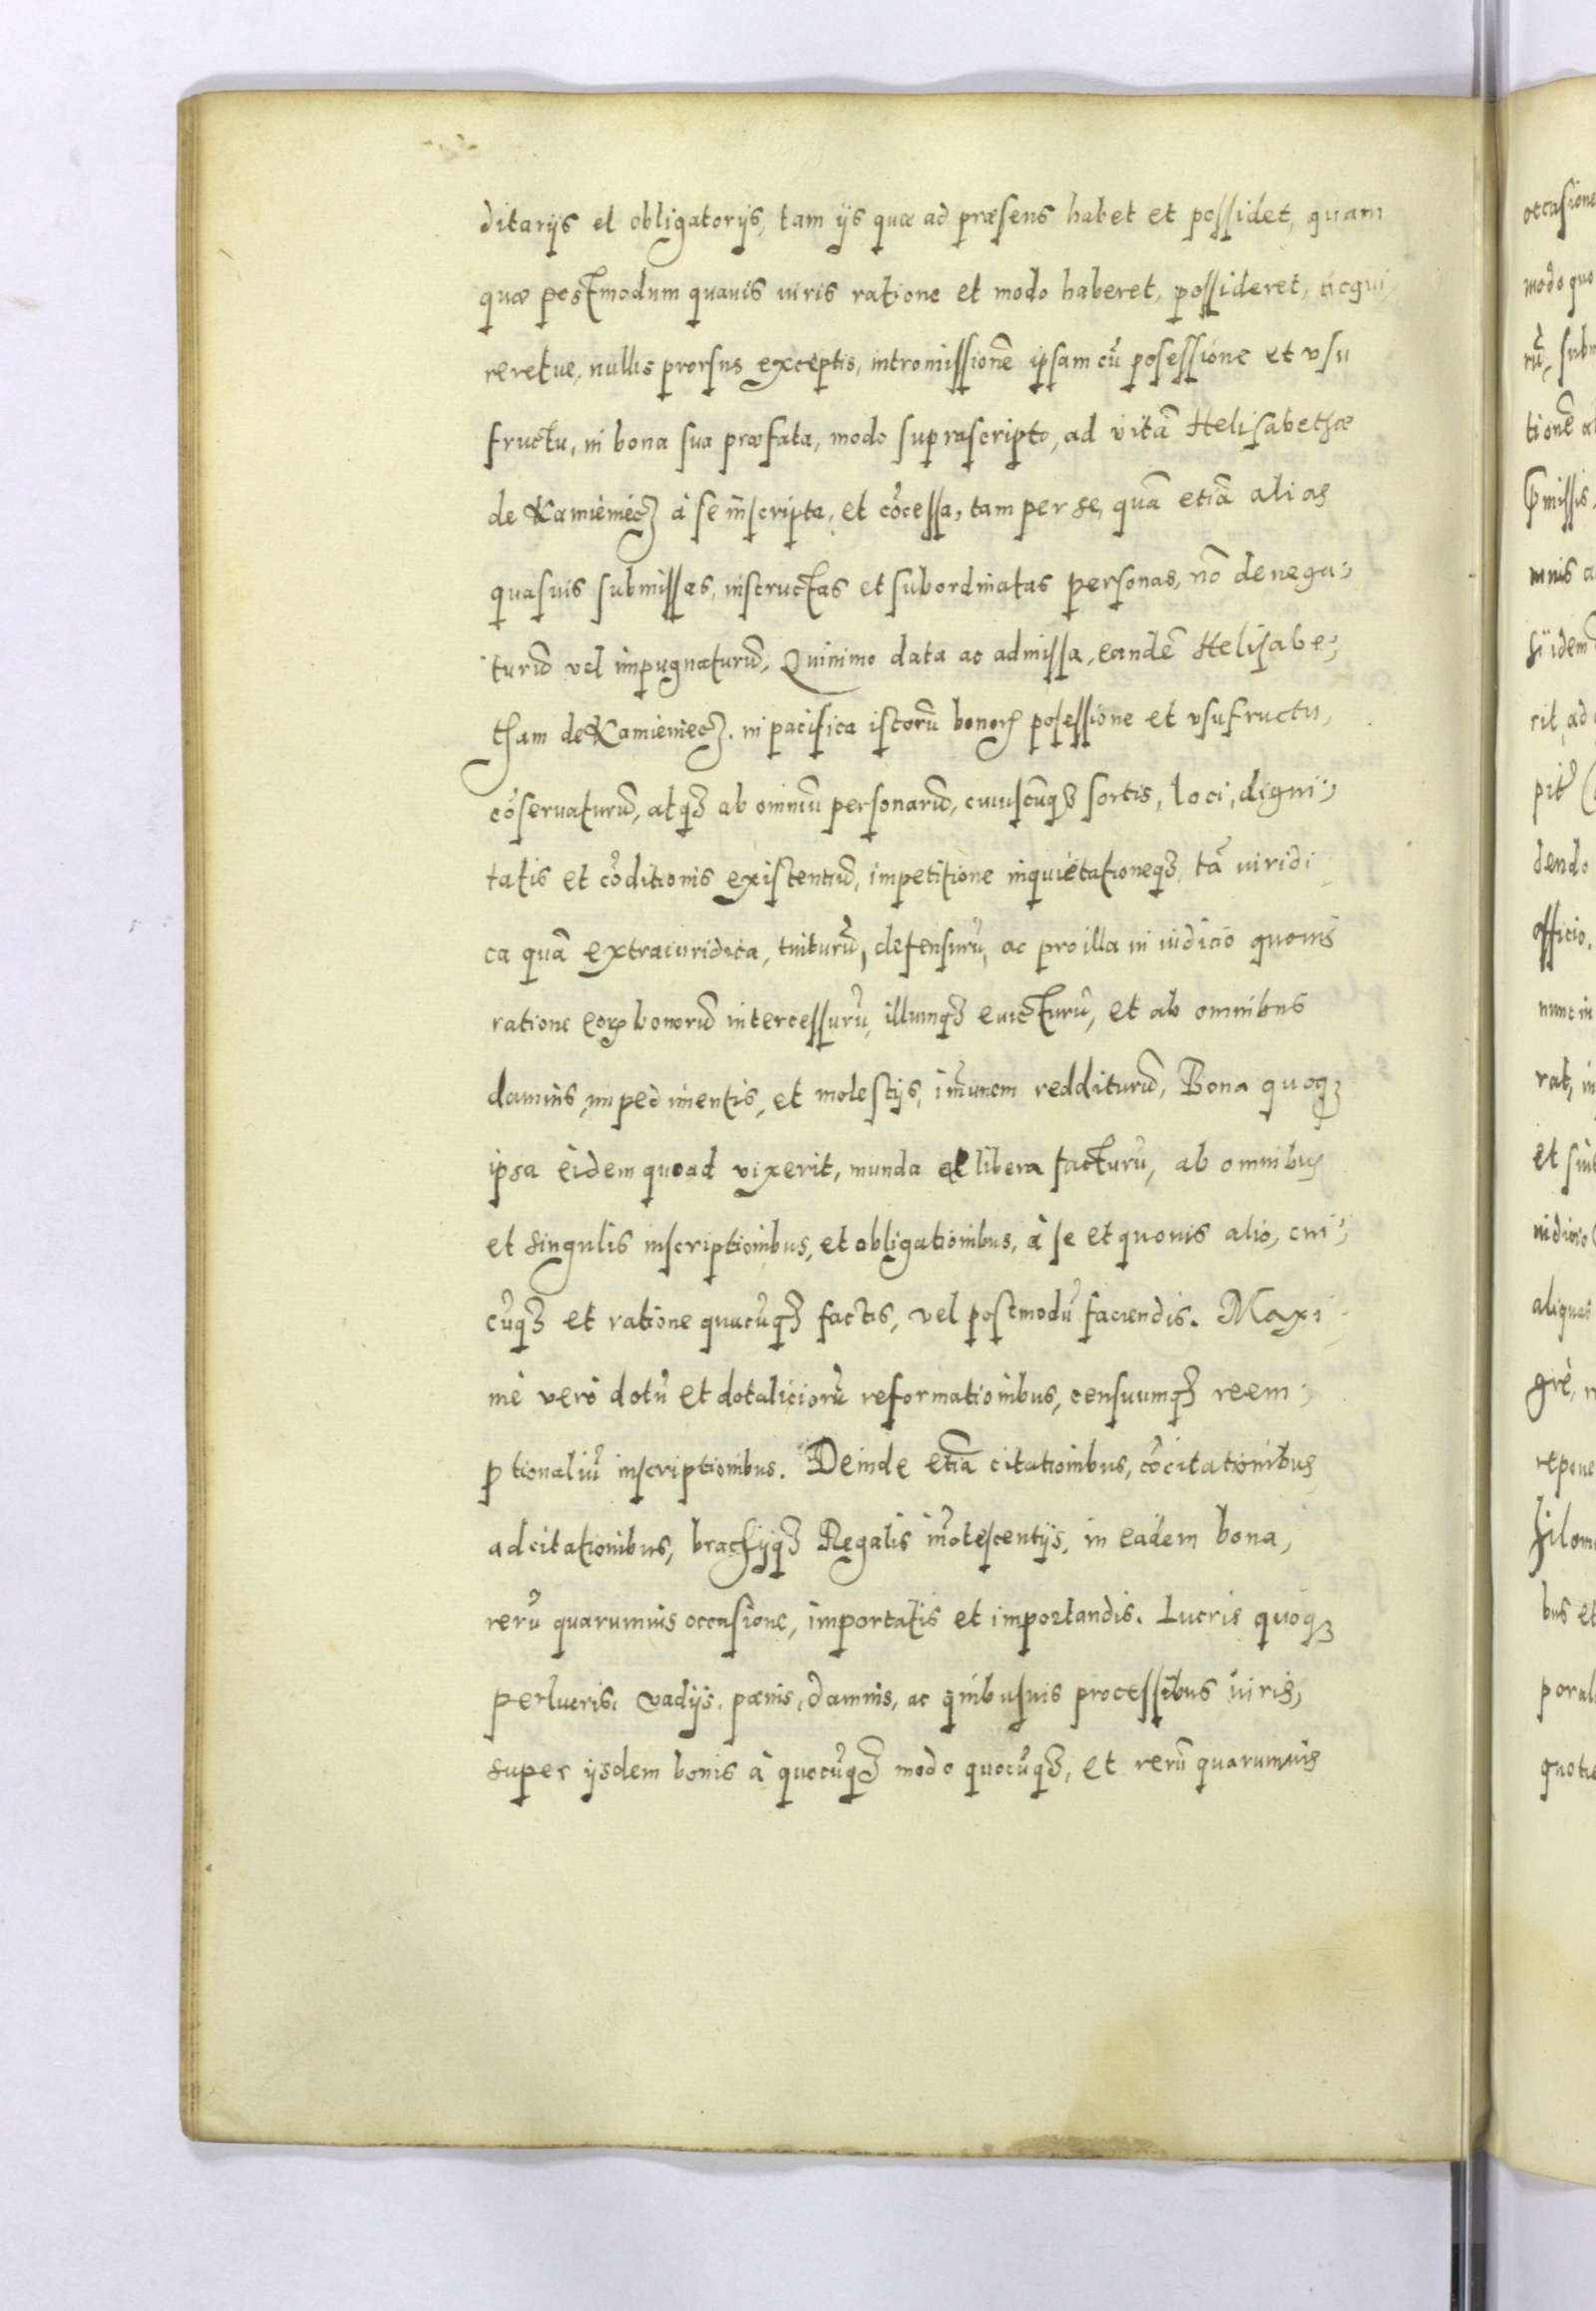 ditarijs et obligatorijs, tam ijs quæ ad præsens habet et possidet, quam
quæ postmodum quauis iuris ratione et modo haberet, possideret, acqui
reretue, nullis prorsus exceptis, intromissionē ipsam cū posessione et vsu
fructu, in bona sua præfata, modo suprascripto, ad vitā Helisabethæ
de Kamieniecz à se inscripta, et cōcessa, tam per se, quā etiā alias
quasuis submissas, instructas et subordinatas personas, nō denega:
turū vel impugnaturū, Quinimo data ac admissa, eandē Helisabe:
tham de Kamieniecz. in pacifica istorū bonorꝝ posessione et vsufructu,
cōseruaturū, atqȝ ab omniū personarū, cuiuscūqȝ sortis, loci, digni:
tatis et cōditionis existentiū, impetitione inquietationeqȝ, tā iuridi
ca quā extraiuridica, tuiturū, defensurū, ac pro illa in iudicio quouis
ratione eorꝝ bonorū intercessurū, illumqȝ euicturū, et ab omnibus
damnis, impedimentis, et molestijs, im̄unem redditurū, Bona quoqȝ
ipsa eidem quoad vixerit, munda et libera facturū, ab omnibus
et singulis inscriptionibus, et obligationibus, à se et quouis alio, cui:
cūqȝ et ratione quacūqȝ factis, vel postmodū faciendis. Maxi
mè verò dotū et dotaliciorū reformationibus, censuumqȝ reem:
ptionaliū inscriptionibus. Deinde etiā citationibus, cōcitationibus
adcitationibus, brachijqȝ Regalis in̄otescentijs, in eadem bona,
rerū quarumuis occasione, importatis et importandis. Lucris quoqȝ
perlucris. vadijs. pænis, damnis, ac quibusuis processibus iuris,
super ijsdem bonis à quocūqȝ modo quocūqȝ, et rerū quarumuis